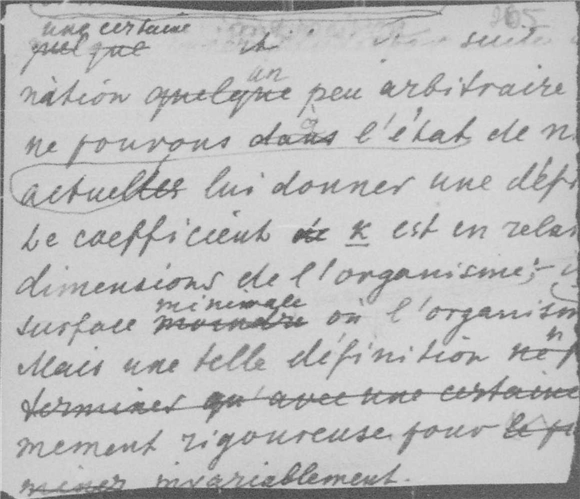 65
une certaine
quelque
un
nation quelque peu arbitraire
à
ne pouvons dans l'état de n
actuelles lui donner une défi
Le coefficient de K est en rela
dimensions de l'organisme;
minimale
surface moindre où l'organism
Mais une telle définition ne p
terminer qu'avec une certaine
mement rigoureuse pour le
miner invariablement.